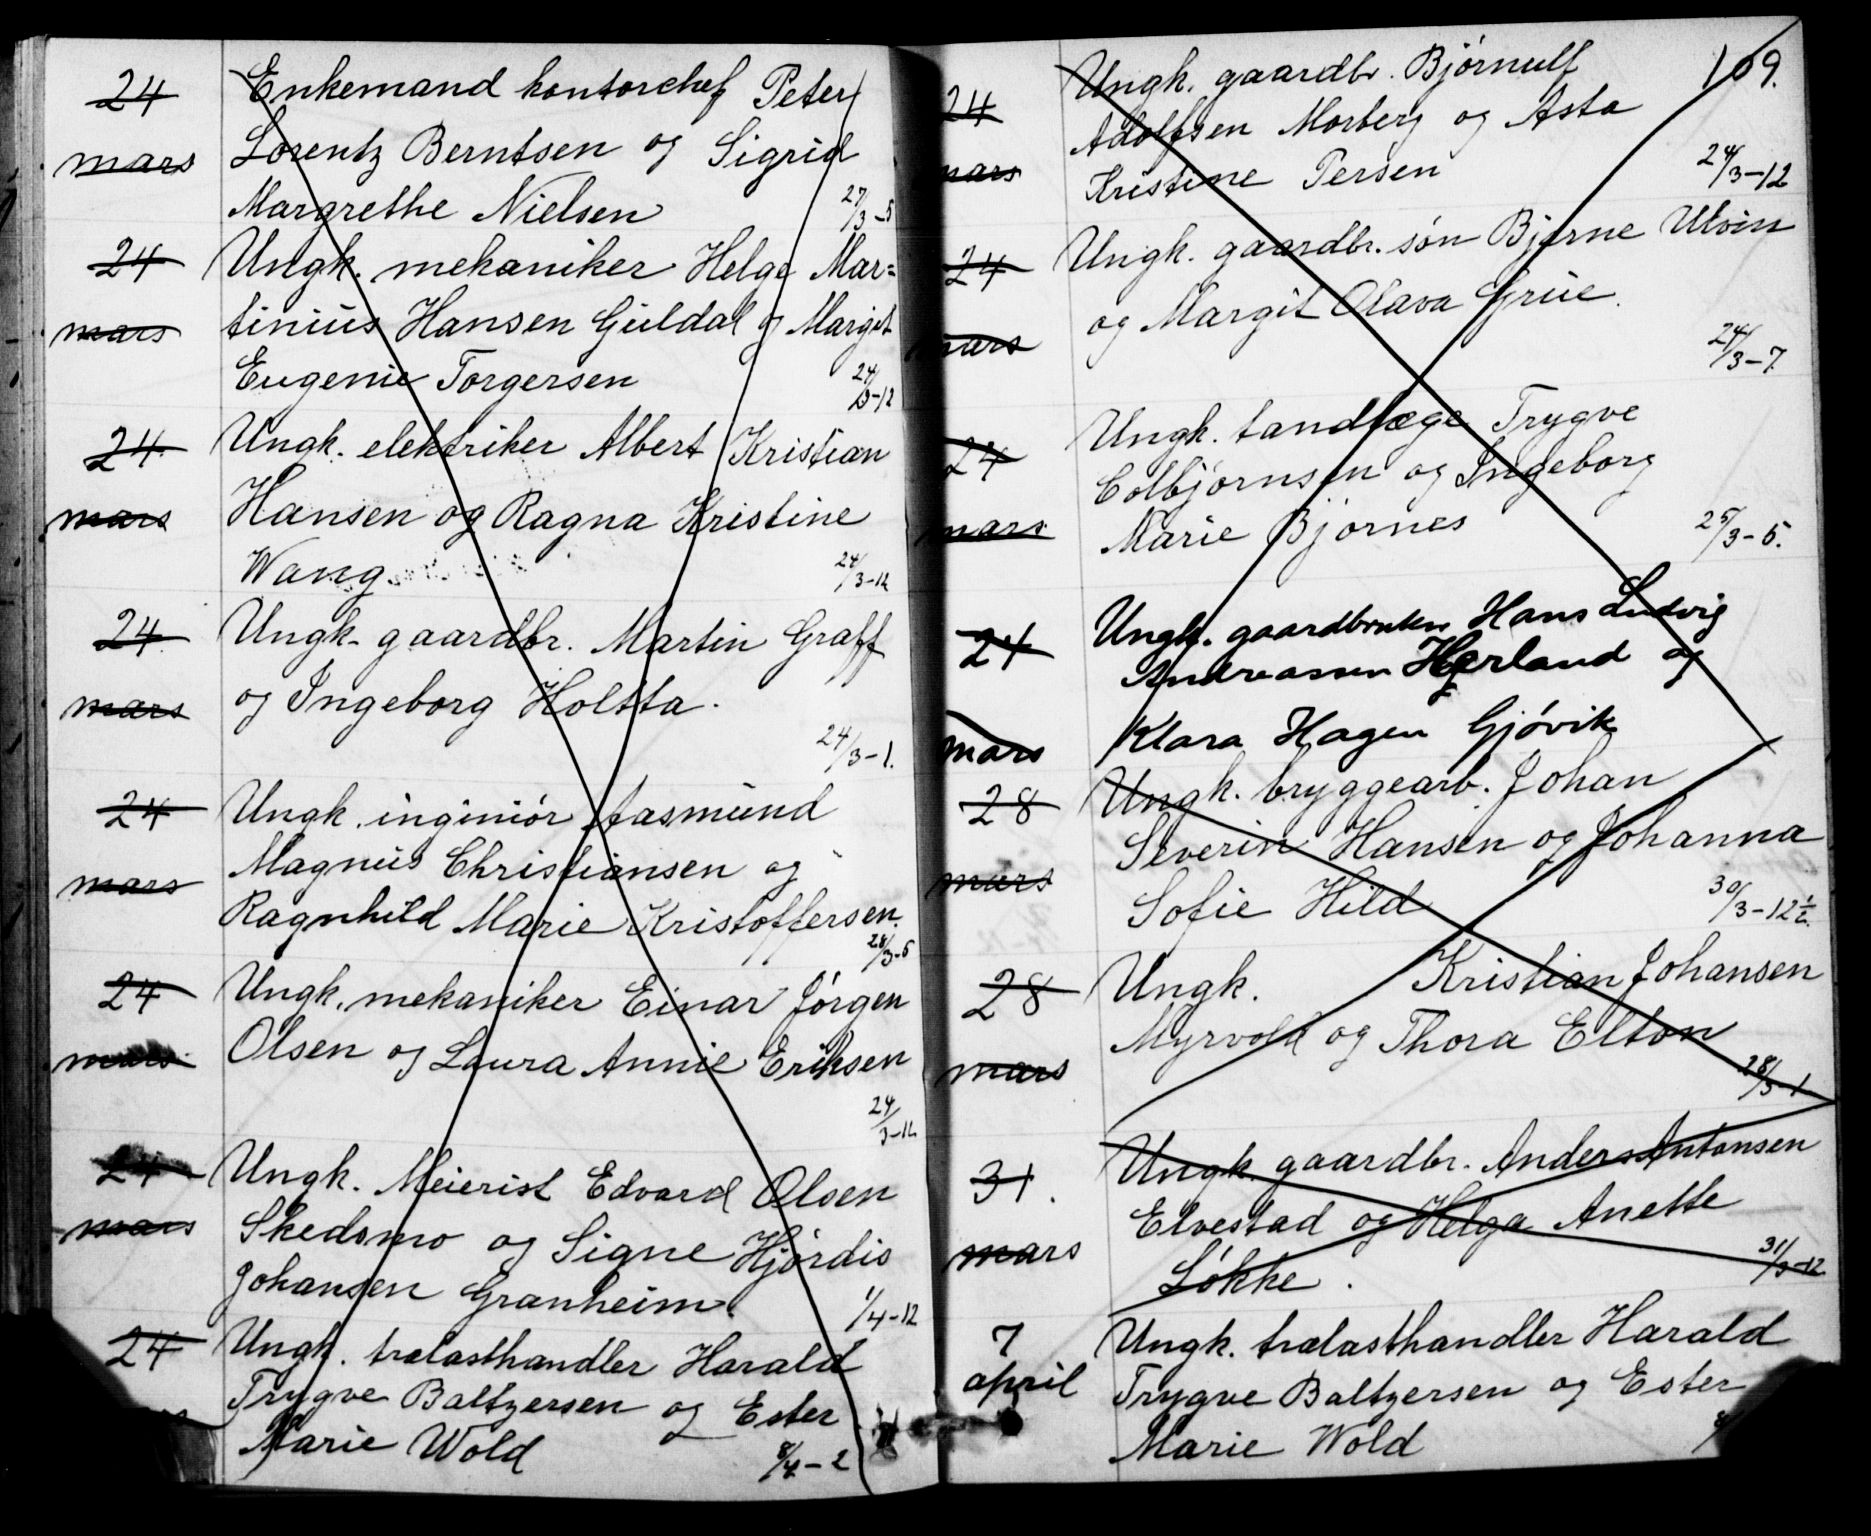 24 Enkemand kontorchef Peter
mars Lorentz Berntsen og Sigrid
Margrethe Nielsen 27/3-5
24 Ungk. mekaniker Helge Mar=
mars tinius Hansen Guldal og Margit
Eugenie Torgersen 24/3-12
24 Ungk. elektriker Albert Kristian
mars Hansen og Ragna Kristine
Wang 24/3-12
24 Ungk. gaardbr. Martin Graff
mars og Ingeborg Holtta.
24/3-1.
24 Ungk. ingeniór Aasmund
mars Magnus Christiansen og
Ragnhild Marie Kristoffersen.
28/3-5
24 Ungk. mekaniker Einar Jórgen
mars Olsen og Laura Annie Eriksen
24/3-12
24 Ungk. Meierist Edvard Olsen
mars Skedsmo og Signe Hjórdis
Johansen Granheim. 1/4-12
24 Ungk. trælasthandler Harald
Trygve Baltzersen og Ester
Marie Wold 8/4-2
109.
24 Ungk. gaardbr. Bjórnulf
Adolfsen Morberg og Asta
mars Kristine Persen 24/3-12
24 Ungk. gaardbr. són Bjarne Ulvin
mars og Margit Olava Grue.
24/3-7
24 Ungk. tandlæge Trygve
Colbjórnsen og Ingeborg
mars Marie Bjornes 25/3-5.
24 Ungk. gaardbruker Hans Ludvig
Andreassen Hærland og
mars Klara Hagen Gjóvik
28 Ungk. bryggearb. Johan
Severin Hansen og Johanna
mars Sofie Hild 30/3-12½
28 Ungk. Kristian Johansen
Myrvold og Thora Elton
mars 28/3-1
31. Ungk. gaardbr. Anders Antonsen
Elvestad og Helga Anette
mars Lókke. 31/3-12
7 Ungk. trælasthandler Harald
april Trygve Baltzersen og Ester
Marie Wold